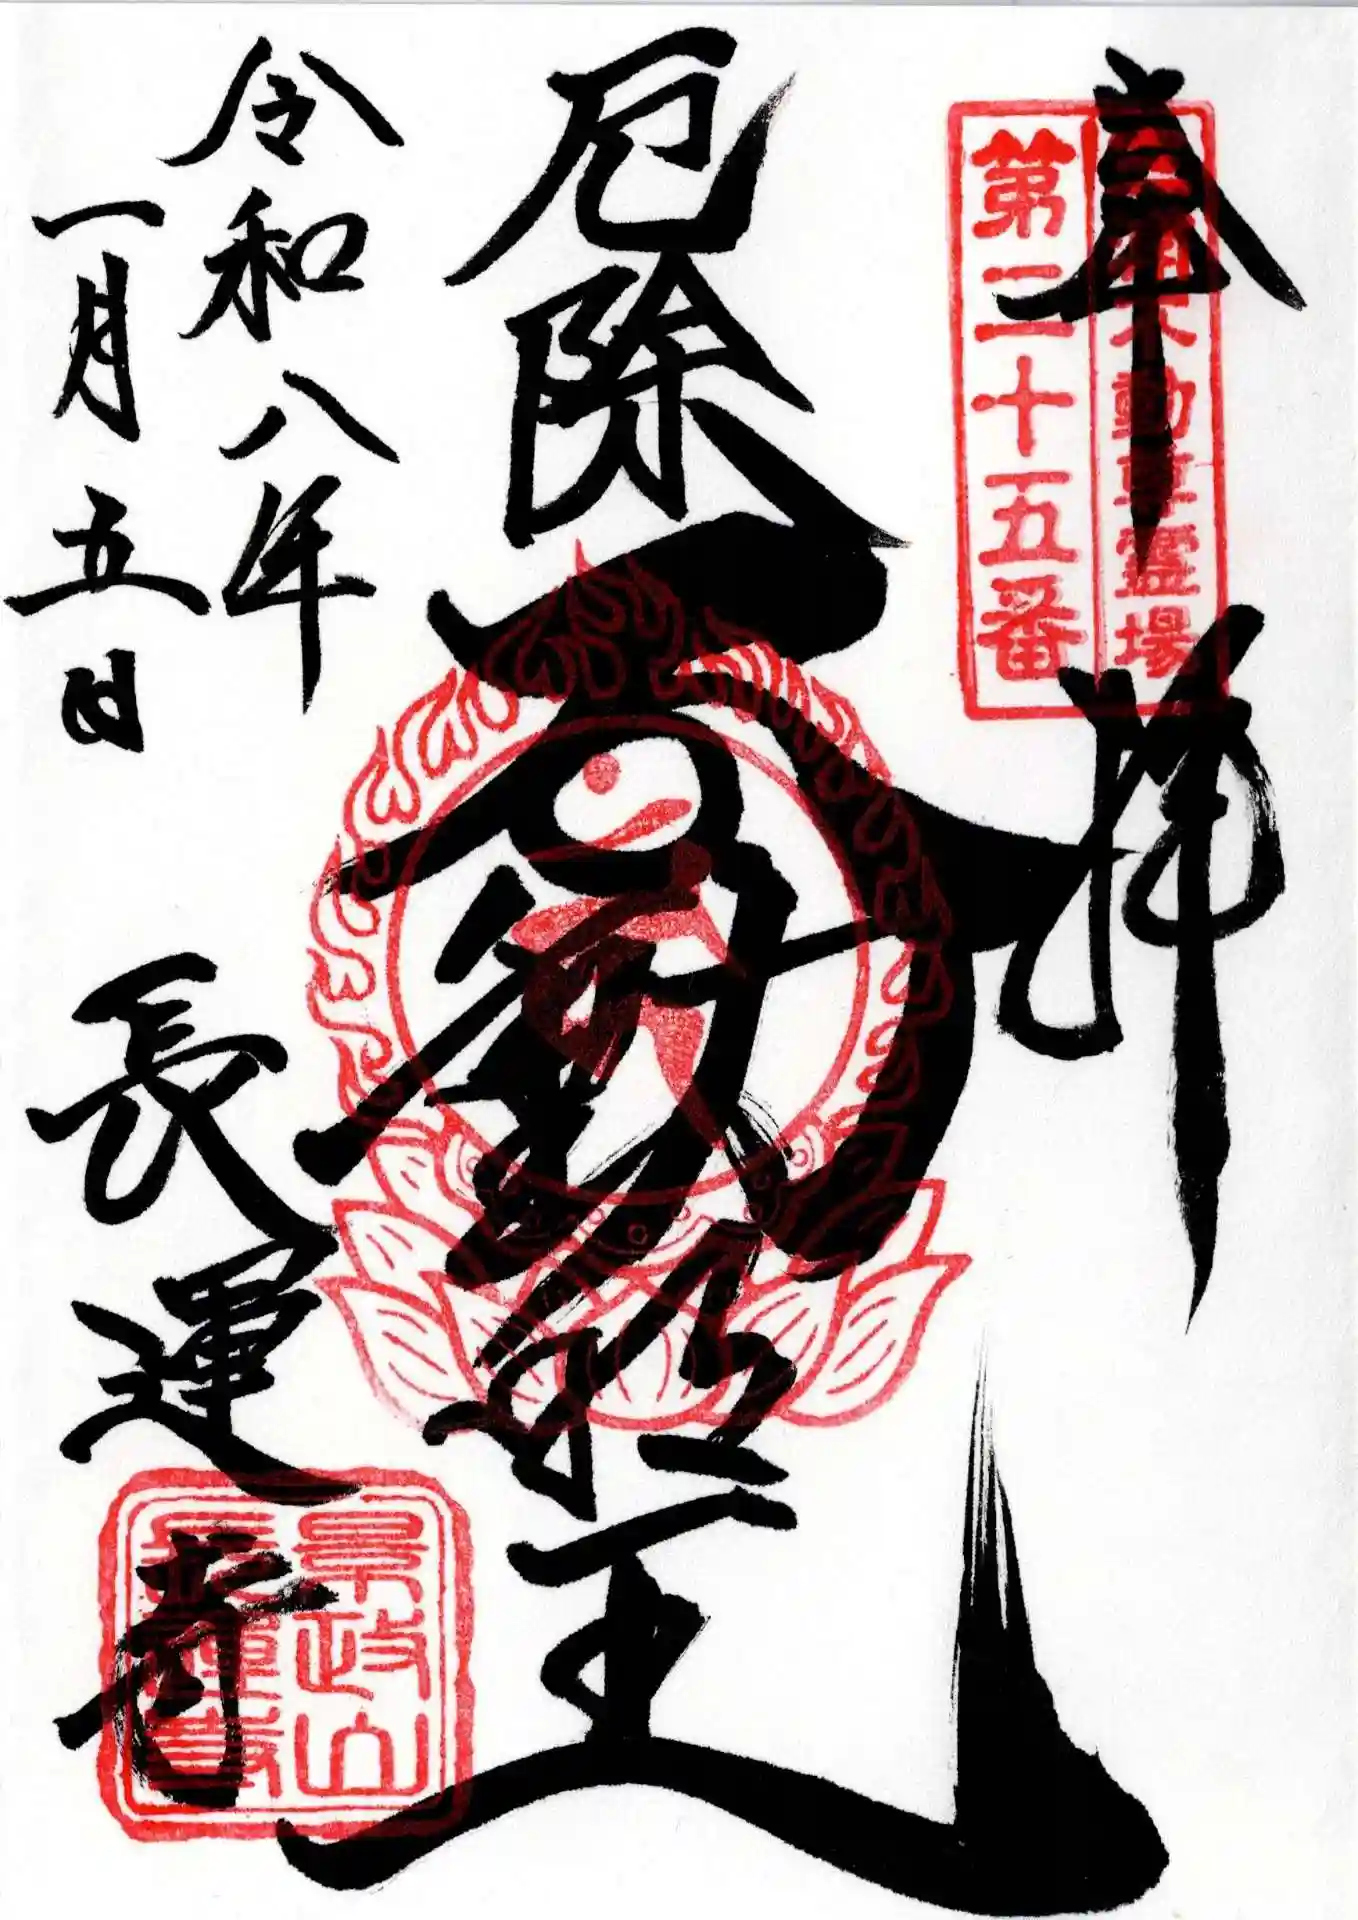 奉拝
不動尊霊場
第二十五番
厄除
不動明王
令和八年
一月五日
長運寺
政山
長運寺